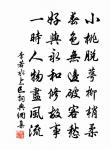 小桃脫萼柳梢柔
春色無邊客愁
好與永和修故事
一時人物盡風流
李若水上巳詞